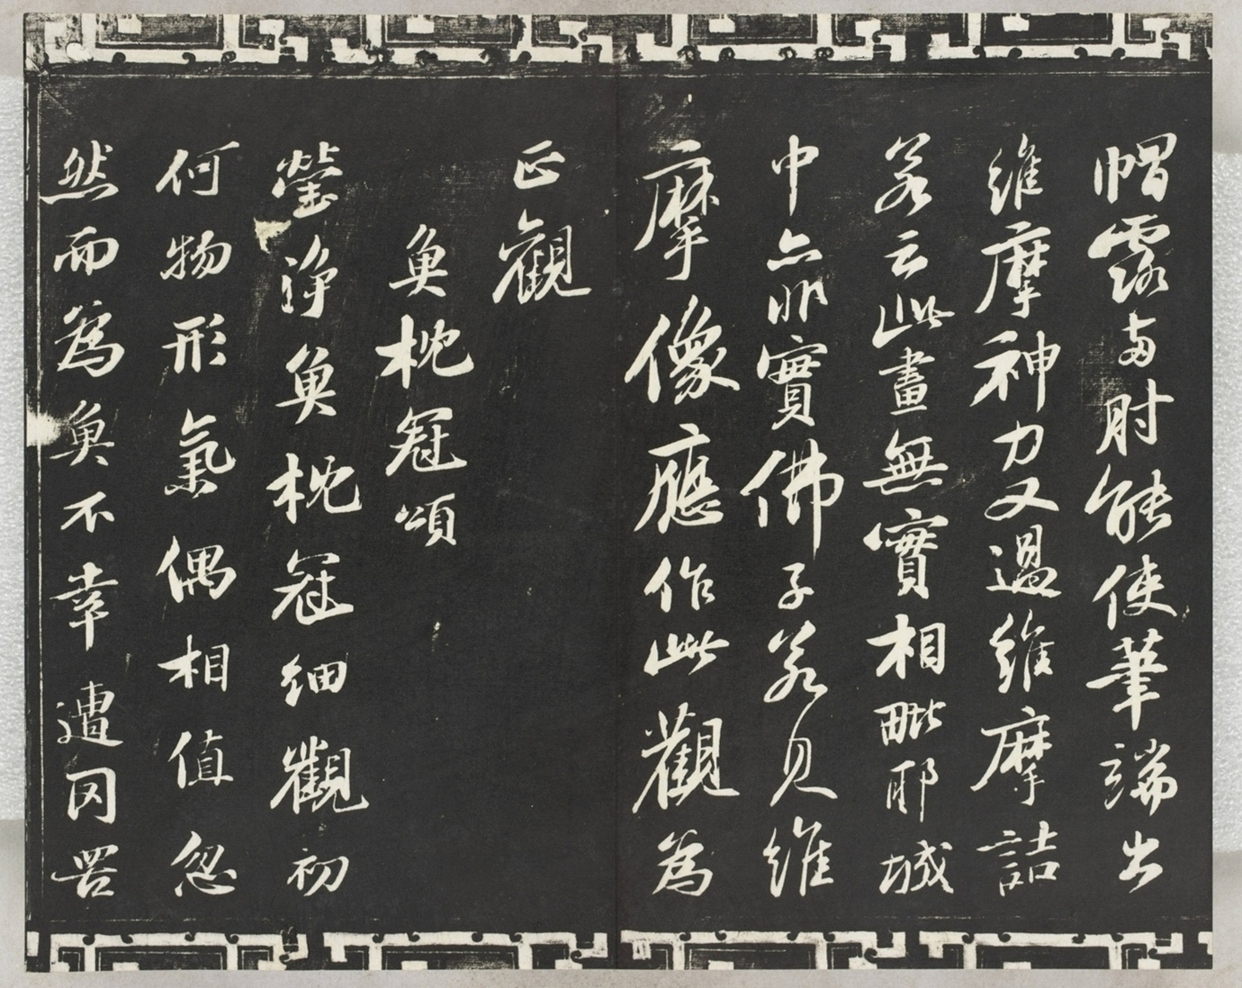 帽露兩肘能使筆端出
維摩神力又過維摩詰
若云此畫無實相毗耶城
中亦非實佛子若見維
摩像應作此觀為
正觀
魚枕冠頌
瑩淨魚枕冠細觀初
何物形氣偶相值忽
然而為魚不幸遭罔罟